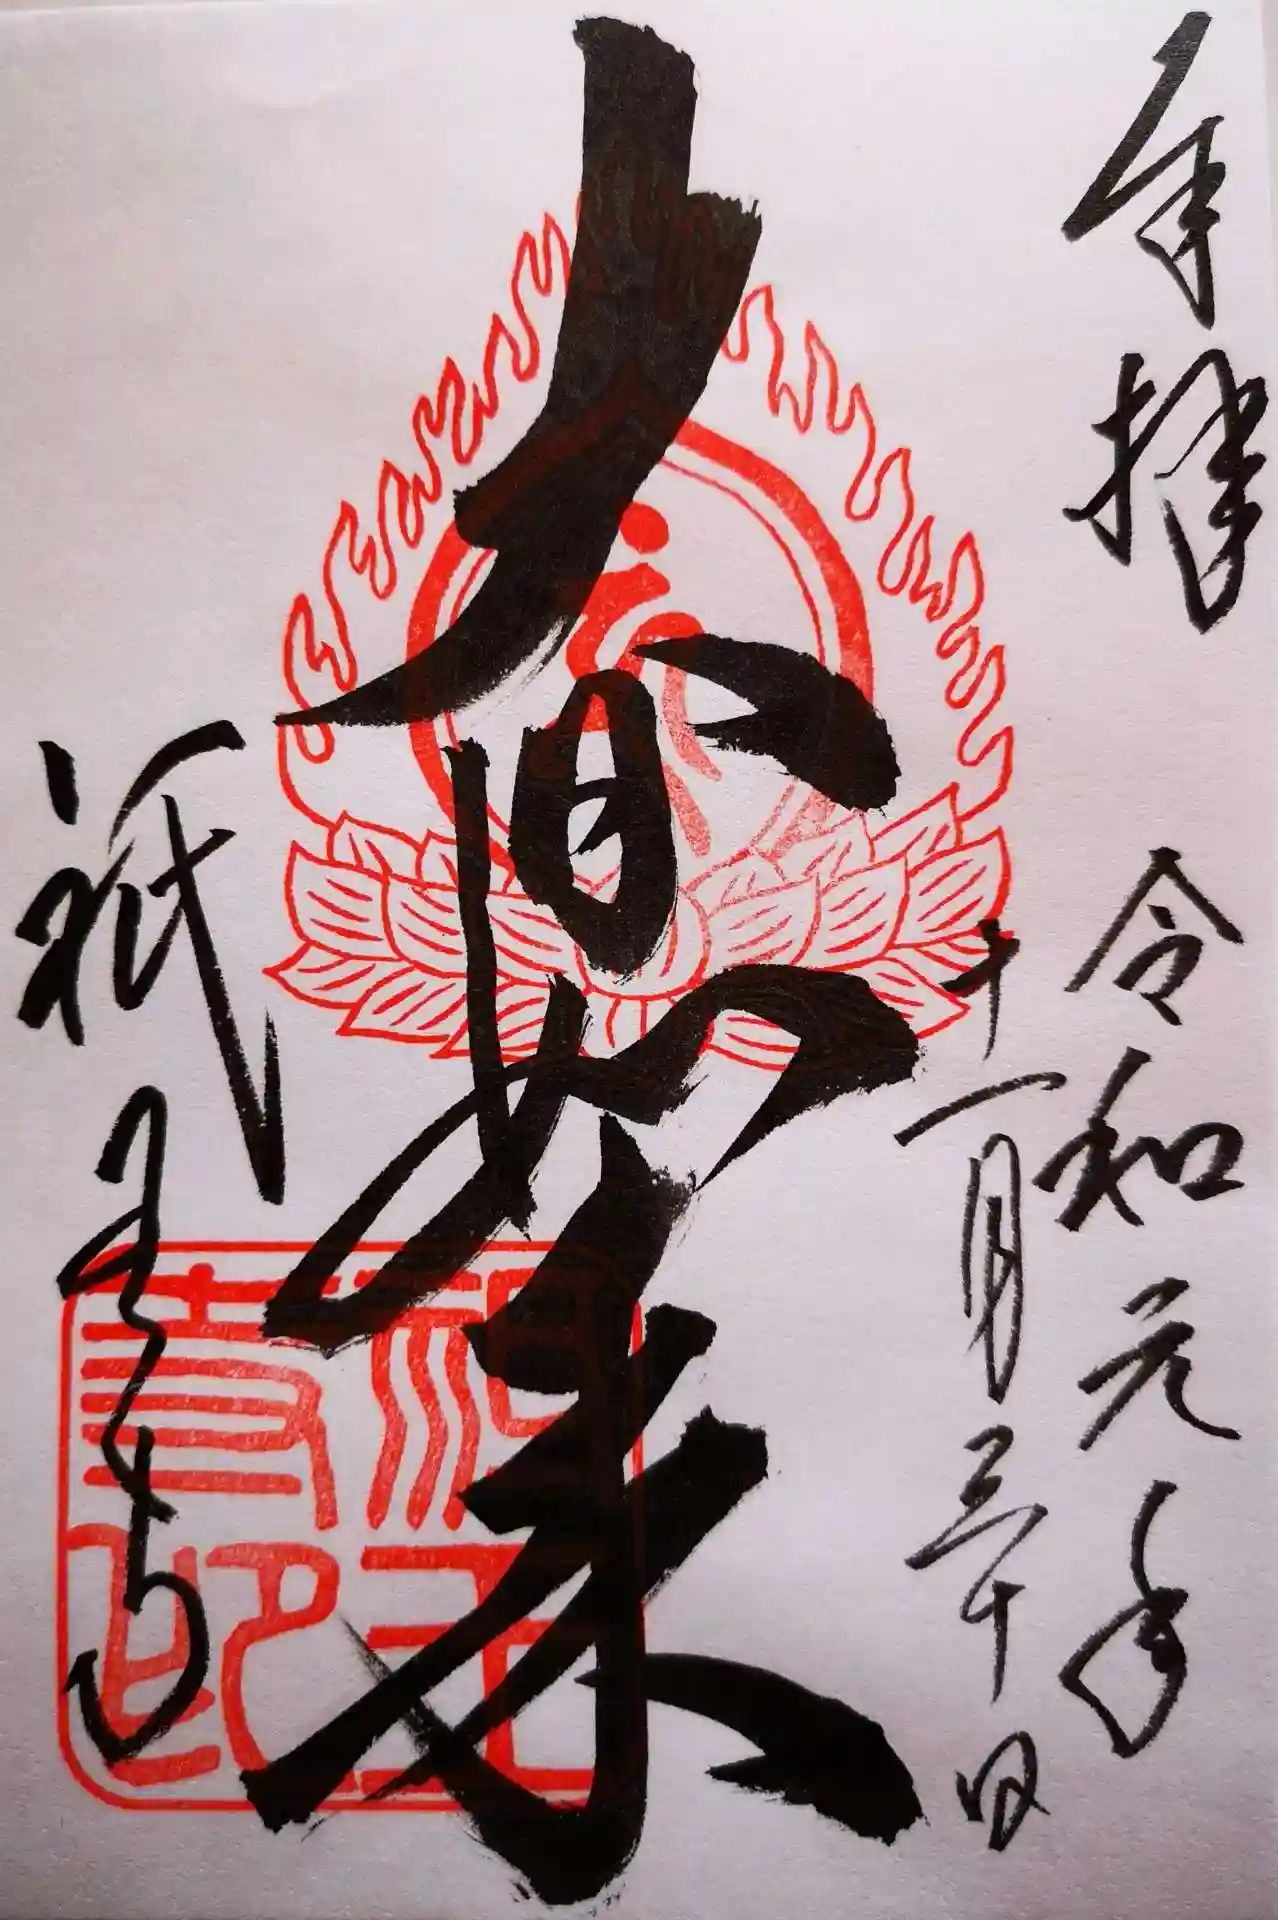 奉拝
令和元年
十一月三十日
大日如来
祇王寺
祇王寺印